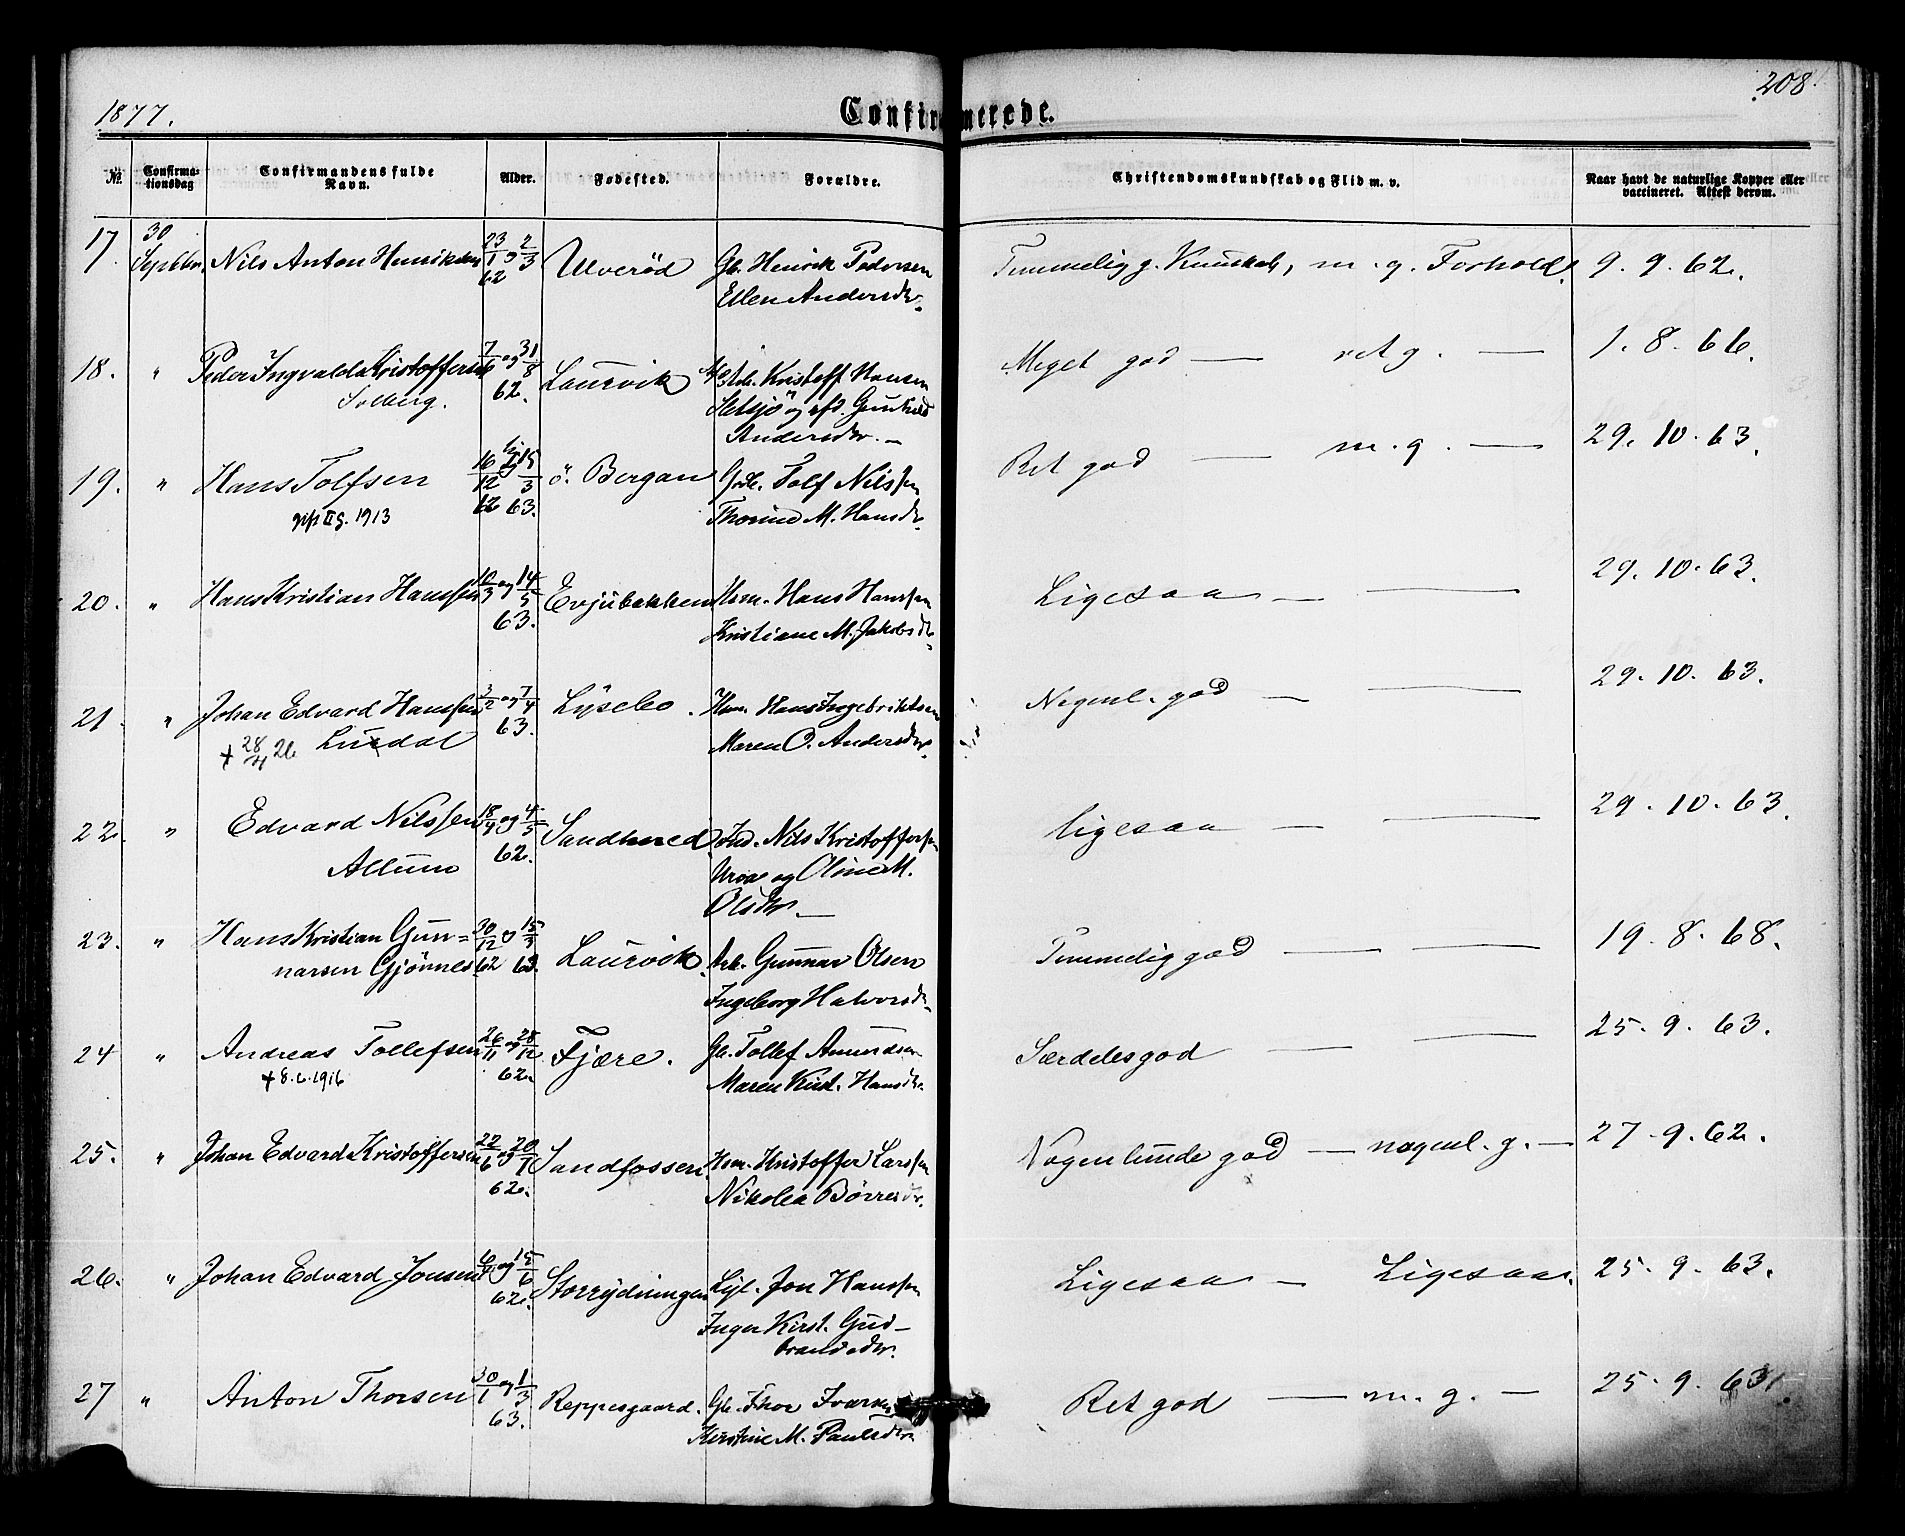 1877. Confirmerede. 208.
No. Confirmationsdag Confirmandens fulde Navn. Alder. Fødested. Forældre. Christendomskundskab og Flid m. v. Naar havt de naturlige Kopper eller vaccineret. Attest derom.
17. 30 Septbr. Nils Anton Henriksen 23/1 og 2/3 62 Ulverød Gb. Henrik Pedersen Temmelig g. Kundskab, m. g. Forhold. 9. 9. 62.
Ellen Andersdtr.
18. " Peder Ingvald Kristoffersen 7/6 og 31/8 62. Laurvik Kristoff Hansen Meget god — ret g. — 1. 8. 66.
Solberg. Sletsjö og afd. Gunhild
Andersdtr. —
19. " Hans Tolfsen 16/12 62 og 15/3 63. ö. Bergan Gdb. Tolf Nilssen Ret god — m. g. — 29. 10. 63.
1913 Thorine M. Hansdtr.
20. " Hans Kristian Hanssen 10/3 og 14/5 63. Evjubakken Hsm. Hans Hanssen Ligesaa — — 29. 10. 63.
Kristiane M. Jakobsdtr.
21. " Johan Edvard Hanssen 3/2 og 7/4 63. Lysebo. Hsm. Hans Ingebriktsen Nogenl. god — — 29. 10. 63.
+ 28/4 26 Lusdal Maren O. Andersdtr.
22. " Edvard Nilssen 18/4 og 4/5 62. Sandhered Ind. Nils Kristoffersen ligesaa — — 29. 10. 63.
Allum og Oline M.
Olsdtr. —
23. " Hans Kristian Gun= 30/12 62 og 15/3 63. Laurvik Arb. Gunnar Olsen Temmelig god — — 19. 8. 68.
narsen Gjönnes Ingeborg Halvorsdtr.
24 " Andreas Tollefsen 26/11 og 28/12 62. Fjære. Gb. Tollef Amundsen Særdeles god — — 25. 9. 63.
+ 8.6.1916 Maren Kirst. Hansdtr.
25. " Johan Edvard Kristoffersen 22/6 og 20/7 62. Sandfossen. Hsm. Kristoffer Larssen Nogenlunde god — nogenl. g. — 27. 9. 62.
Nikolea Börresdtr.
26. " Johan Edvard Jonsen og 15/6 62. Storrydningen Lejl. Jon Hanssen Ligesaa — Ligesaa. 25. 9. 63.
Inger Kirst. Gud-
brandsdtr.
27 " Anton Thorsen 30/1 og 1/3 63. Reppesgaard. Gb. Thor Ivarsen Ret god — m. g. — 25. 9. 63.
Kirstine M. Paulsdtr.